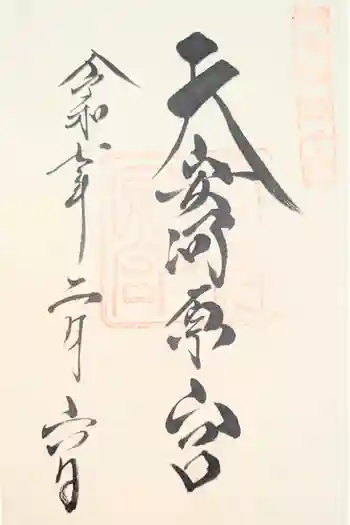 天安河原宮
令和六年二月六日